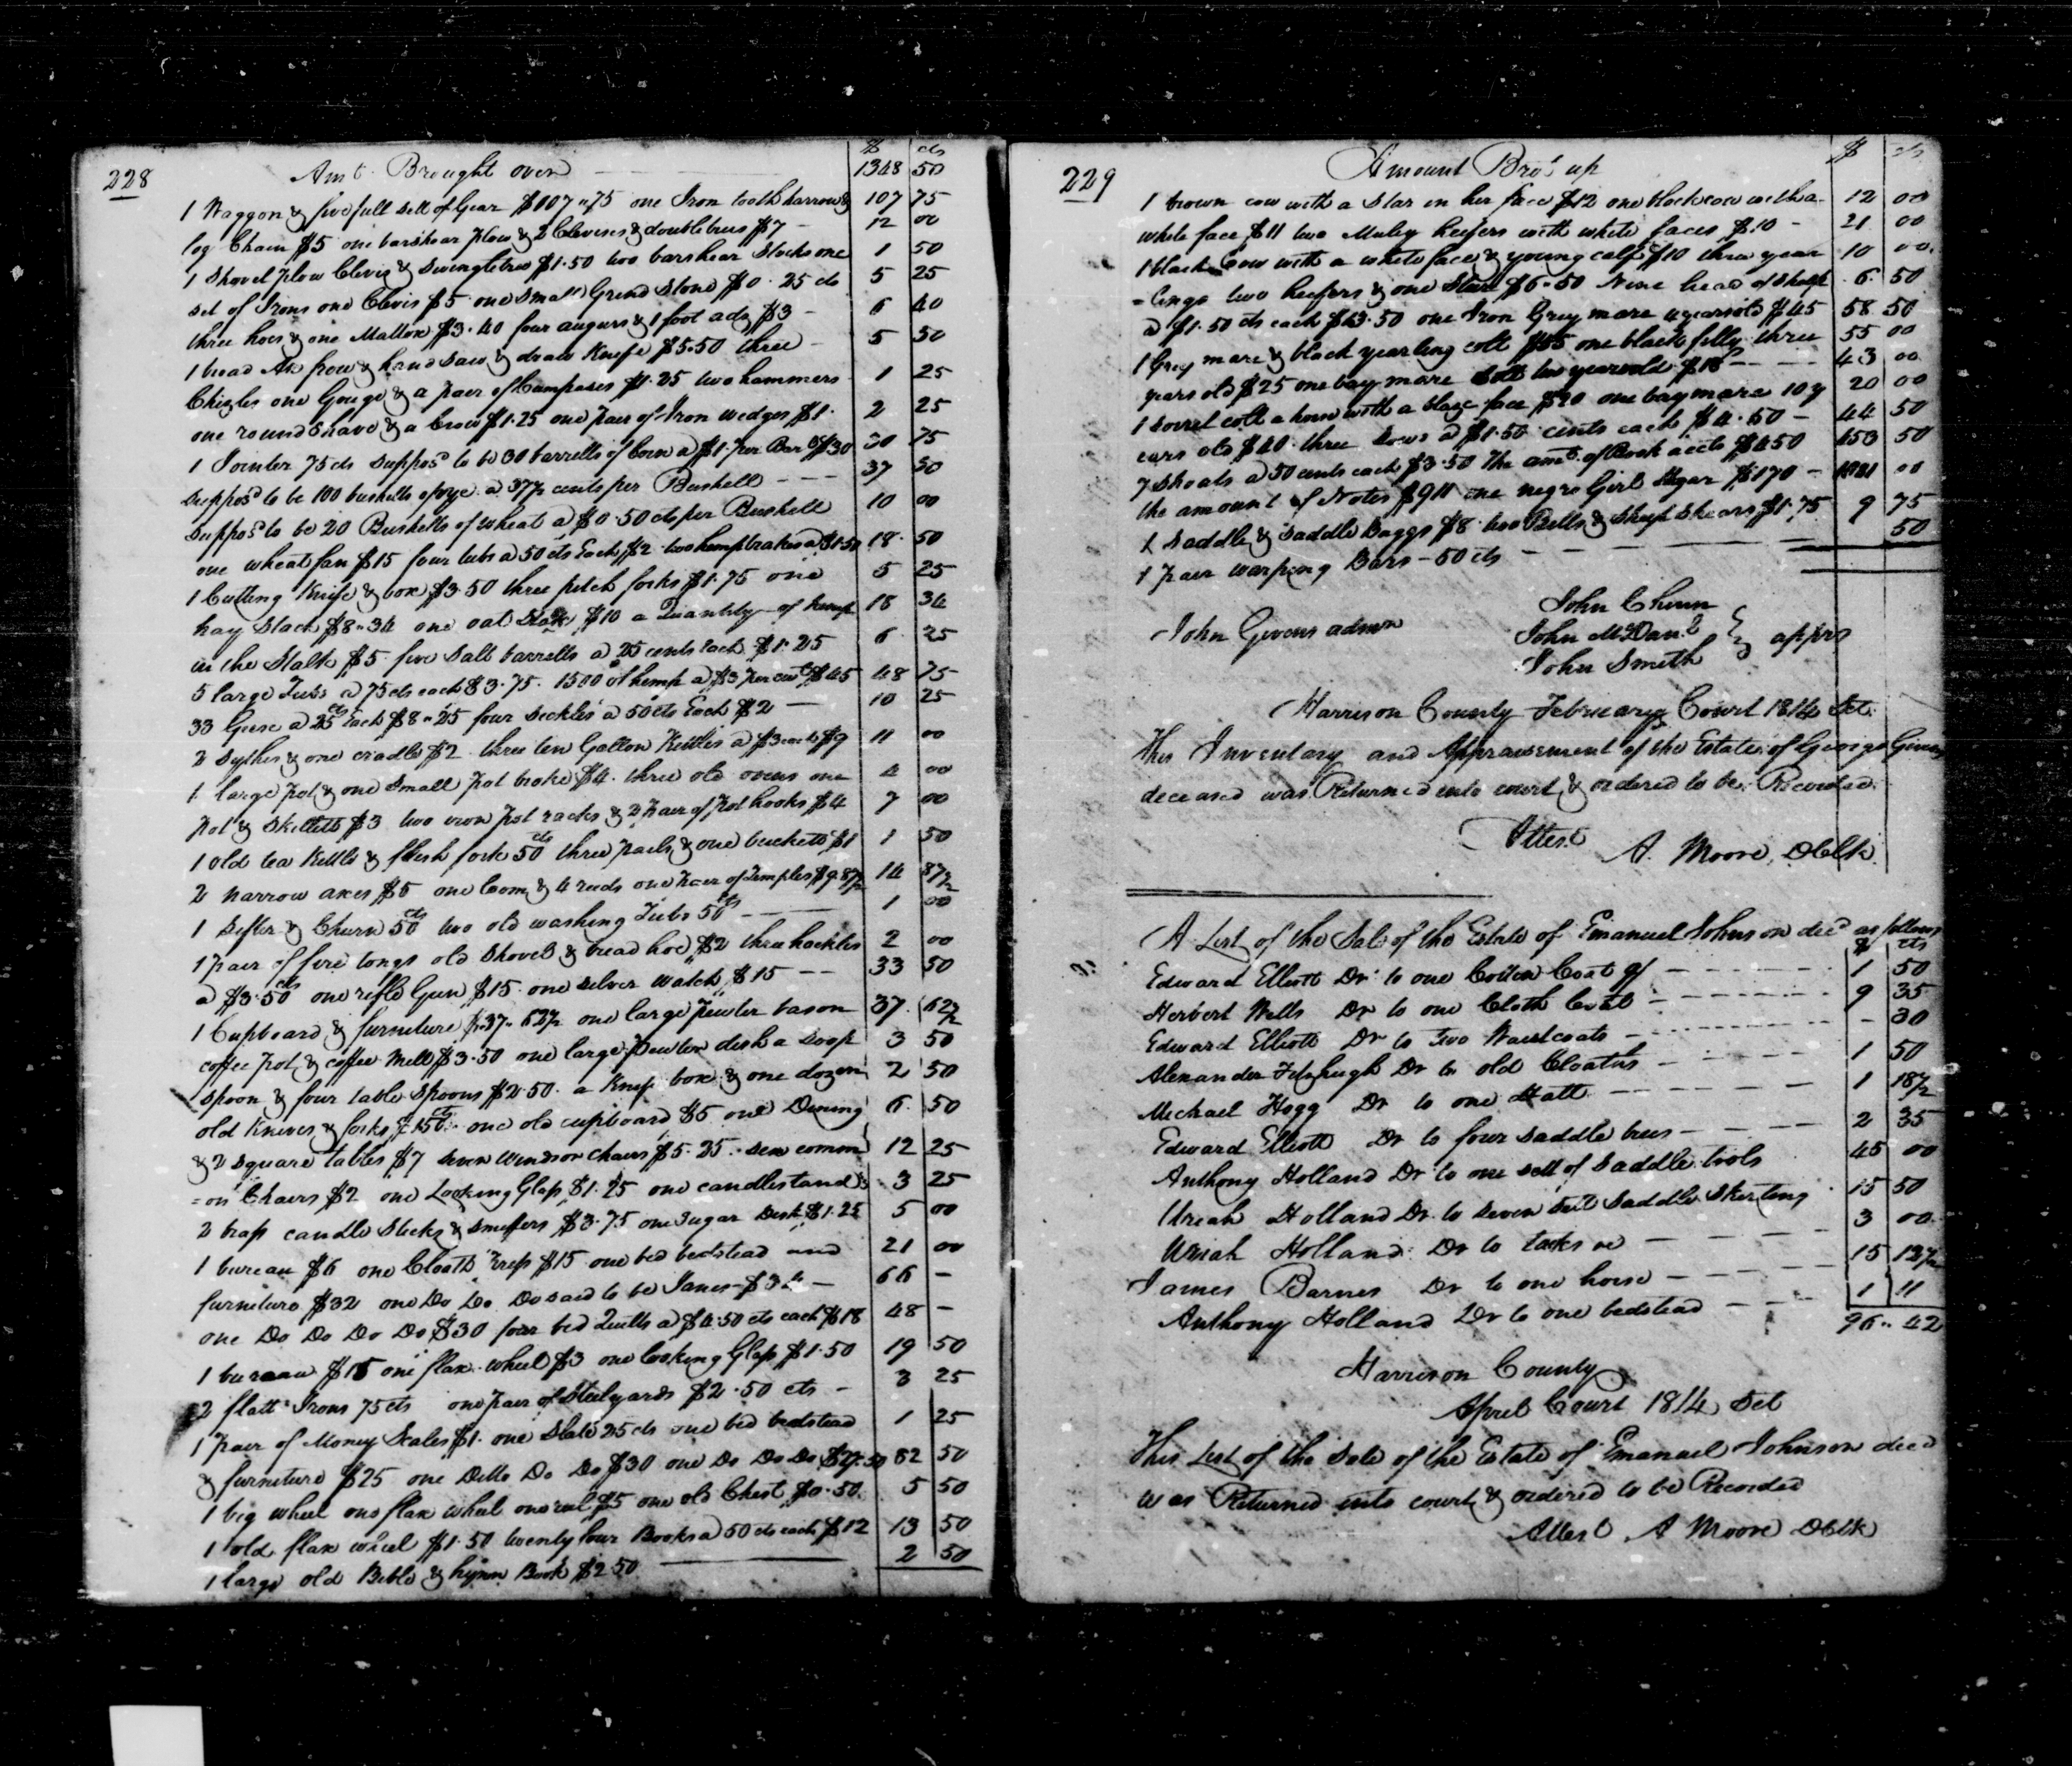 228
$ cts
Amt Brought over 1348 50
1 Waggon & five full sett of Gear $107"75 one Iron tooth harrow & 107 75
log Chain $5 one barshear plow & 2 Clevises & doubletrees $7 – 12 00
1 Shovel plow Clevis & Swingletree $1.50 two barshear Stocks one 1 50
set of Irons one Clevis $5 one Small Grind Stone $0.25 cts 5 25
three hoes & one Mattox $3.40 four augurs & 1 foot adz $3 – 6 40
1 broad Ax frow & hand saw & draw Knife $5.50 three 5 50
Chizles one Gouge & a pair of Compases $1.25 two hammers 1 25
one round shave & a Crow $1.25 one pair of Iron wedges $1. 2 25
1 Jointer 75 cts Suppos'd to be 30 barrells of Corn a $1. per Barl $30 30 75
Suppos'd to be 100 bushells of rye a 37½ cents per Bushell --- 37 50
Suppos'd to be 20 Bushells of wheat a $0.50 cts per Bushell 10 00
one wheat fan $15 four tubs a 50 cts Each $2 two hemp brakes a $1.50 18. 50
1 Cutting Knife & box $3.50 three pitch forks $1.75 one 5 25
hay Stack $8"34 one oat Stack $10 a Quantity of hemp 18 34
in the Stalk $5. five Salt barrells a 25 cents Each $1.25 6. 25
5 large Tubs a 75 cts each $3.75. 1500 of hemp a $3 per cwt $45 48 75
33 Geese a 25 cts Each $8"25 four Seckles a 50 cts Each $2 — 10 25
2 Sythes & one cradle $2 three ten Gallon Kettles a $3 each $9 11 00
1 large pot & one Small pot broke $4. three old ovens one 4 00
pot & Skilletts $3 two iron pot racks & 2 pair of pot hooks $4 7 00
1 old tea Kettle & flesh fork 50 cts three pails & one bucketts $1 1 50
2 narrow axes $5 one loom & 4 reeds one pair of Temples $9.87½ 14 87½
1 Sifter & Churn 50 cts two old washing Tubs 50 cts — 1 00
1 pair of fire tongs old Shovel & bread hoe $2 three hackles 2 00
a $3.50 cts one rifle Gun $15. one silver watch $15 -- 33 50
1 Cupboard & furniture $37"62½ one large pewter bason 37. 62½
coffee pot & coffee Mill $3.50 one large pewter dish a Soop 3 50
spoon & four table Spoons $2.50. a Knife box & one dozen 2 50
old Knives & forks $1.50 cts. one old cupboard $5 one Dining 6. 50
& 2 square tables $7 seven windsor chairs $5.25. sex comm 12 25
=on Chairs $2 one Looking Glass $1.25 one candlestand 3 25
2 brass candle Sticks & Snuffers $3.75 one Sugar Desk $1.25 5 00
1 bureau $6 one Cloaths press $15 one bed bedstead and 21 00
furniture $32 one Do Do Do said to be Janes $34 – 66 –
one Do Do Do Do $30 four bed Quilts a $4.50 cts each $18 48 –
1 bureau $15 one flax wheel $3 one looking Glass $1.50 19 50
2 flatt Irons 75 cts one pair of Steelyards $2.50 cts – 3 25
1 pair of Money Scales $1. one Slate 25 cts one bed bedstead 1 25
& furniture $25 one Ditto Do Do $30 one Do Do Do $27.50 82 50
1 big wheel one flax wheel one reel $5 one old Chest $0.50. 5 50
1 old flax wheel $1.50 twenty four Books a 50 cts each $12 13 50
1 large old Bible & hymn Book $2.50 2 50
229
$ cts
Amount Bro't up
1 brown cow with a Star in her face $12 one black cow with a 12 00
white face $11 two Muley heifers with white faces $10 – 21 00
1 black Cow with a white face & young calf $10 three year 10 00.
=lings two heifers & one Steer $6.50 Nine head of Sheep 6. 50
a $1.50 cts each $13.50 one Iron Grey mare 4 years old $45 58 50
1 Grey mare & black yearling colt $55 one black filly three 55 00
years old $25 one bay mare Colt two years old $18 --- 43 00
1 sorrel colt a horse with a blaze face $20 one bay mare 10 y 20 00
ears old $40. three Sows a $1.50 cents each $4.50 – 44 50
7 Shoats a 50 cents each $3.50 the amt. of Book accts $450 453 50
the amount of Notes $911 one negro Girl Hagar $170 – 1081 00
1 Saddle & Saddle Baggs $8 two Bells & Sheep Shears $1.75 9 75
1 pair warping Bars – 50 cts 50
John Givens admr
John Chinn
John McDanl } apprs
John Smith
Harrison County February Court 1814 Sct.
This Inventary and Appraisement of the Estate of George Givens
deceased was Returned into court & ordered to be Recorded.
Attest A. Moore, DClk.
A List of the Sale of the Estate of Emanuel Johnson decd as follows
$ cts
Edward Elliott Dr to one Cotton Coat of 1 50
Herbert Wells Dr to one Cloth Coat 9 35
Edward Elliott Dr to two Waistcoats – 30
Alexander Fitzhugh Dr to old Cloaths 1 50
Michael Hogg Dr to one Hatt 1 18½
Edward Elliott Dr to four saddle trees 2 35
Anthony Holland Dr to one sett of Saddle tools 45 00
Uriah Holland Dr to seven Seal Saddle Skirting 15 50
Uriah Holland Dr to tacks 3 00
James Barnes Dr to one horse 15 12½
Anthony Holland Dr to one bedstead 1 11
96.. 42
Harrison County
April Court 1814 Sct
This List of the Sale of the Estate of Emanuel Johnson decd
was Returned into court & ordered to be Recorded
Attest A Moore DClk